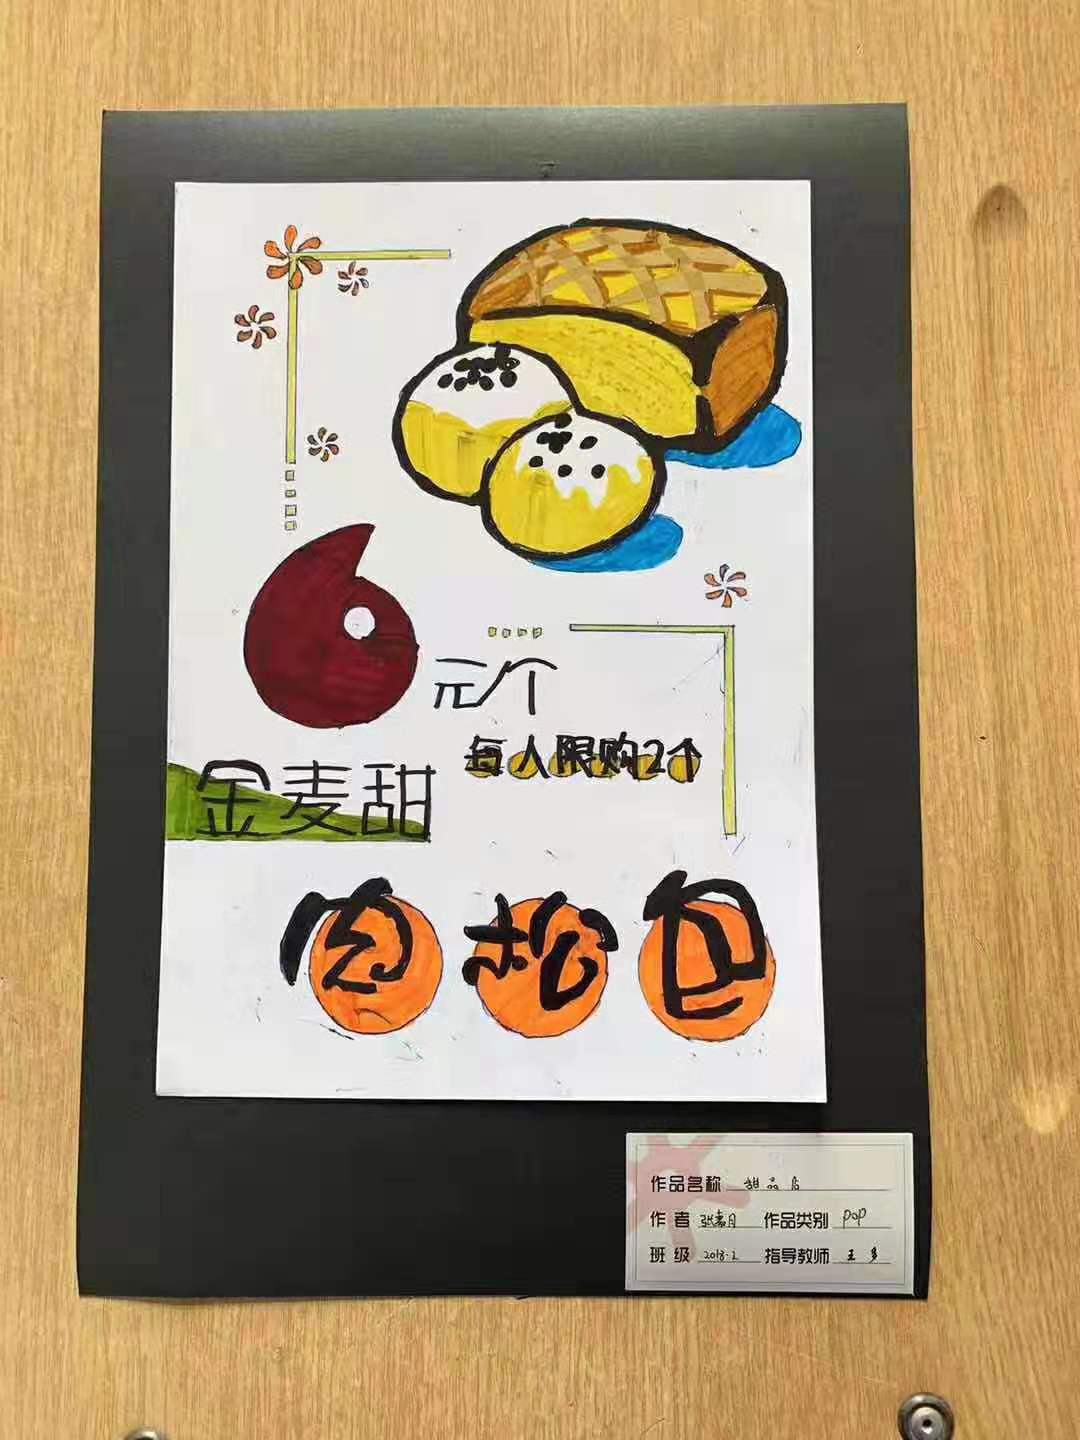 6元/个
每人限购2个
金麦甜
肉松包
作品名称 甜品店
作者 张嘉月 作品类别 POP
班级 2018.2 指导教师 王多